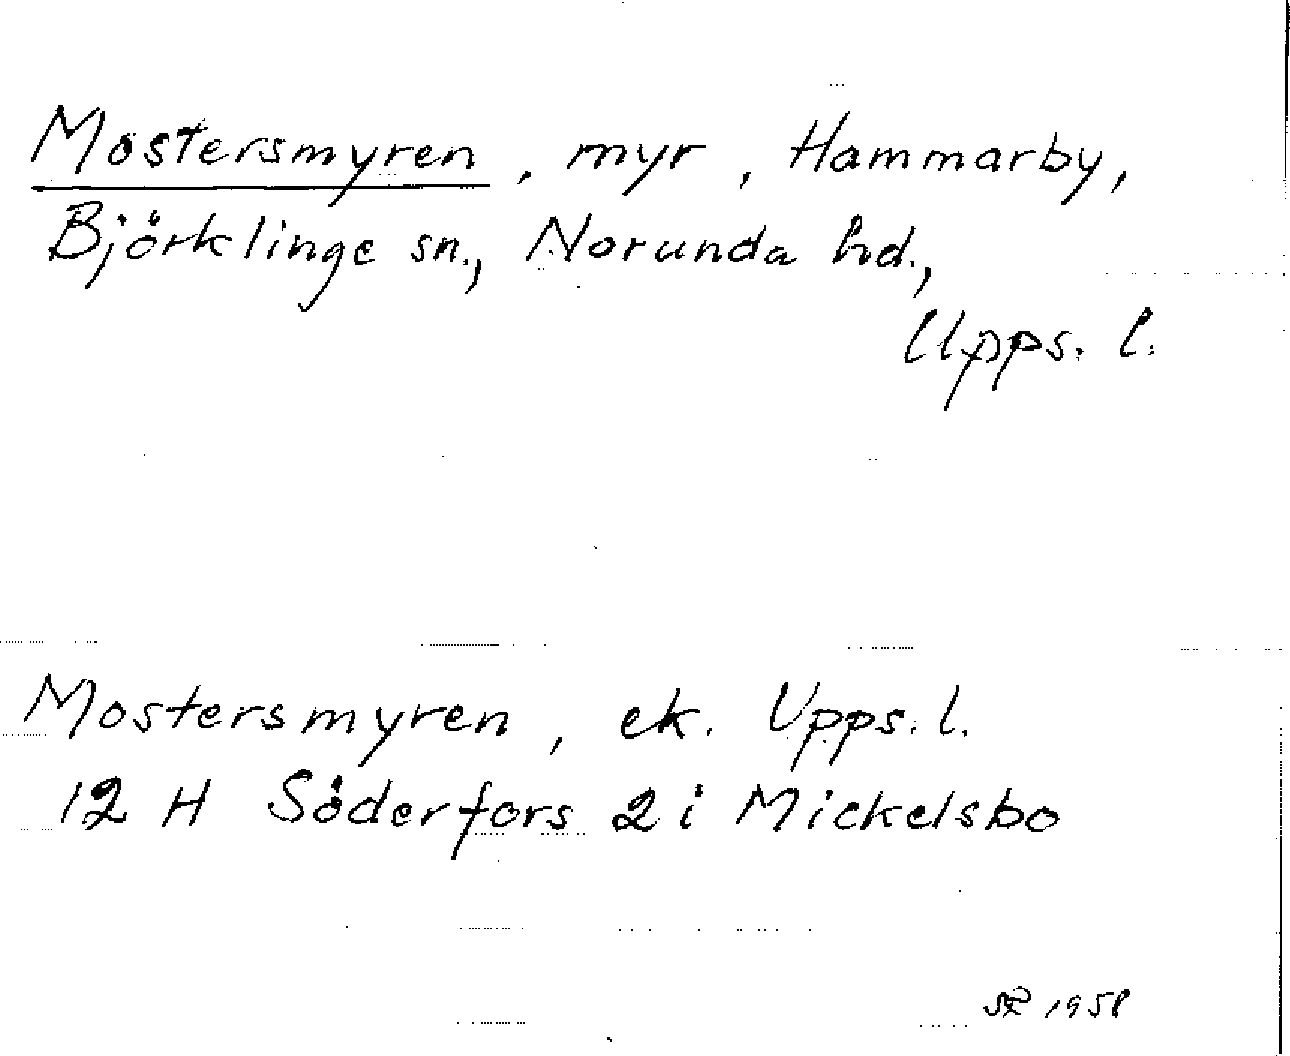 Mostersmyren, myr, Hammarby,
Björklinge sn., Norunda hd.,
Upps. l.
Mostersmyren, ek. Upps. l.
12 H Söderfors 2 i Mickelsbo
1958